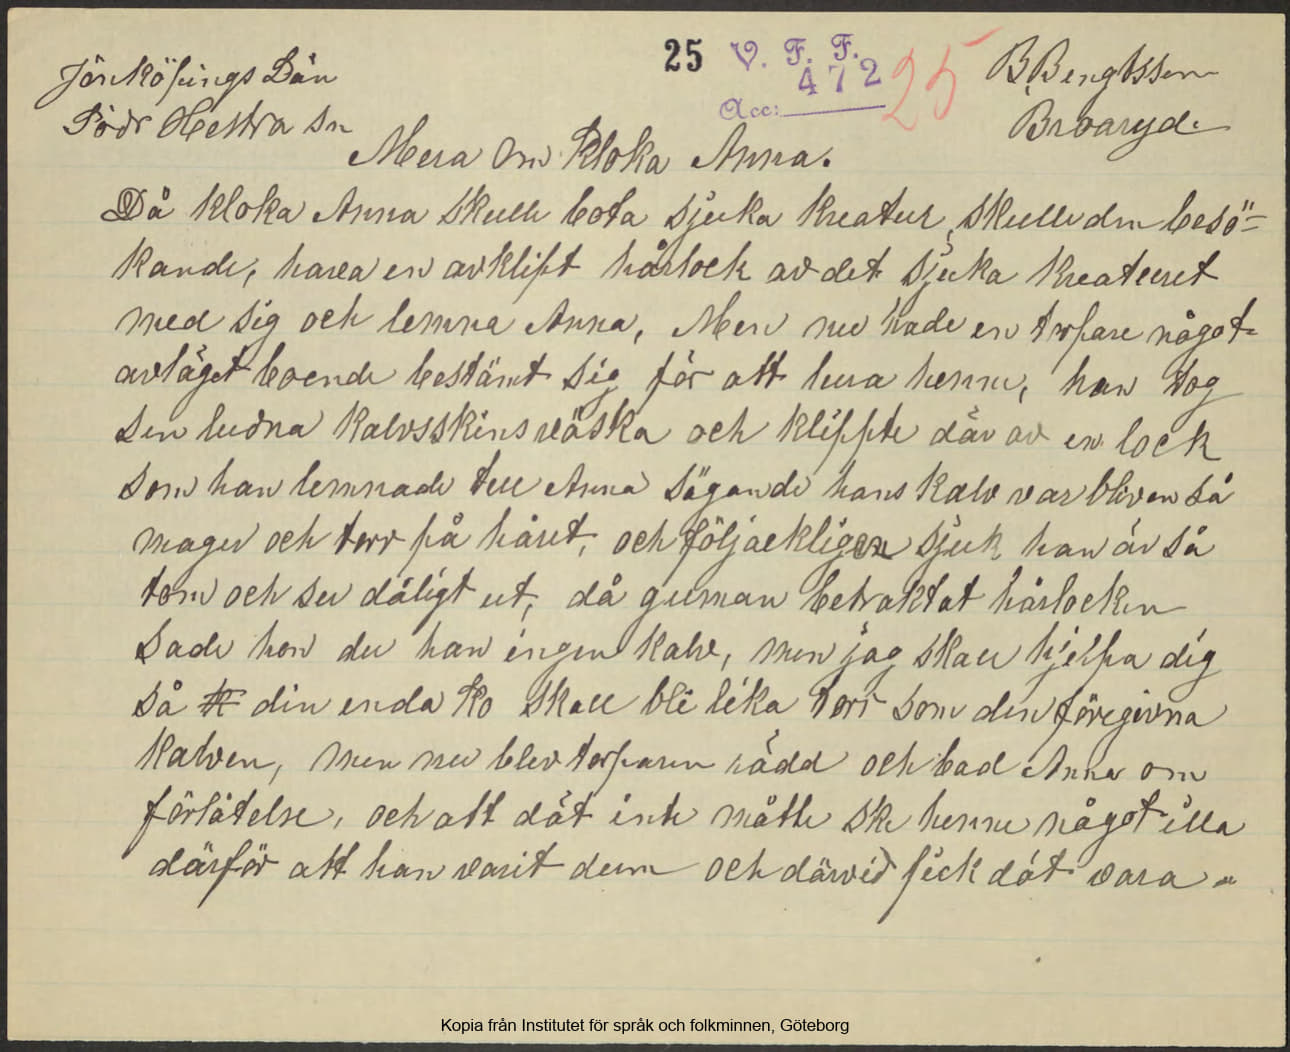 25 V. F. F. 25
472
Acc:
Jönköpings Län
Södr Hestra sn
B. Bengtsson
Brvaryd.
Mera Om Kloka Anna.
Då kloka Anna skulle bota sjuka kreatur, skulle den besö-
kande, hava en avklipt hårlock av det sjuka kreaturet
med sig och lemna Anna, Men nu hade en torpare något-
avläget boende bestämt sig för att lura henne, han tog
sin ludna kalvsskinsväska och klippte där av en lock
som han lemnade till Anna sägande hans kalv var bliven så
mager och torr på håret, och följackligen sjuk han är så
tom och ser dåligt ut, då guman betraktat hårlocken
sade hon du han ingen kalv, men jag skall hjelpa dig
så tt din enda ko skall bli lika torr som den föregivna
kalven, men nu blev torparen rädd och bad Anna om
förlåtelse, och att dät inte måtte ske henne något illa
därför att han varit dum och därvid fick dät vara -
Kopia från Institutet för språk och folkminnen, Göteborg